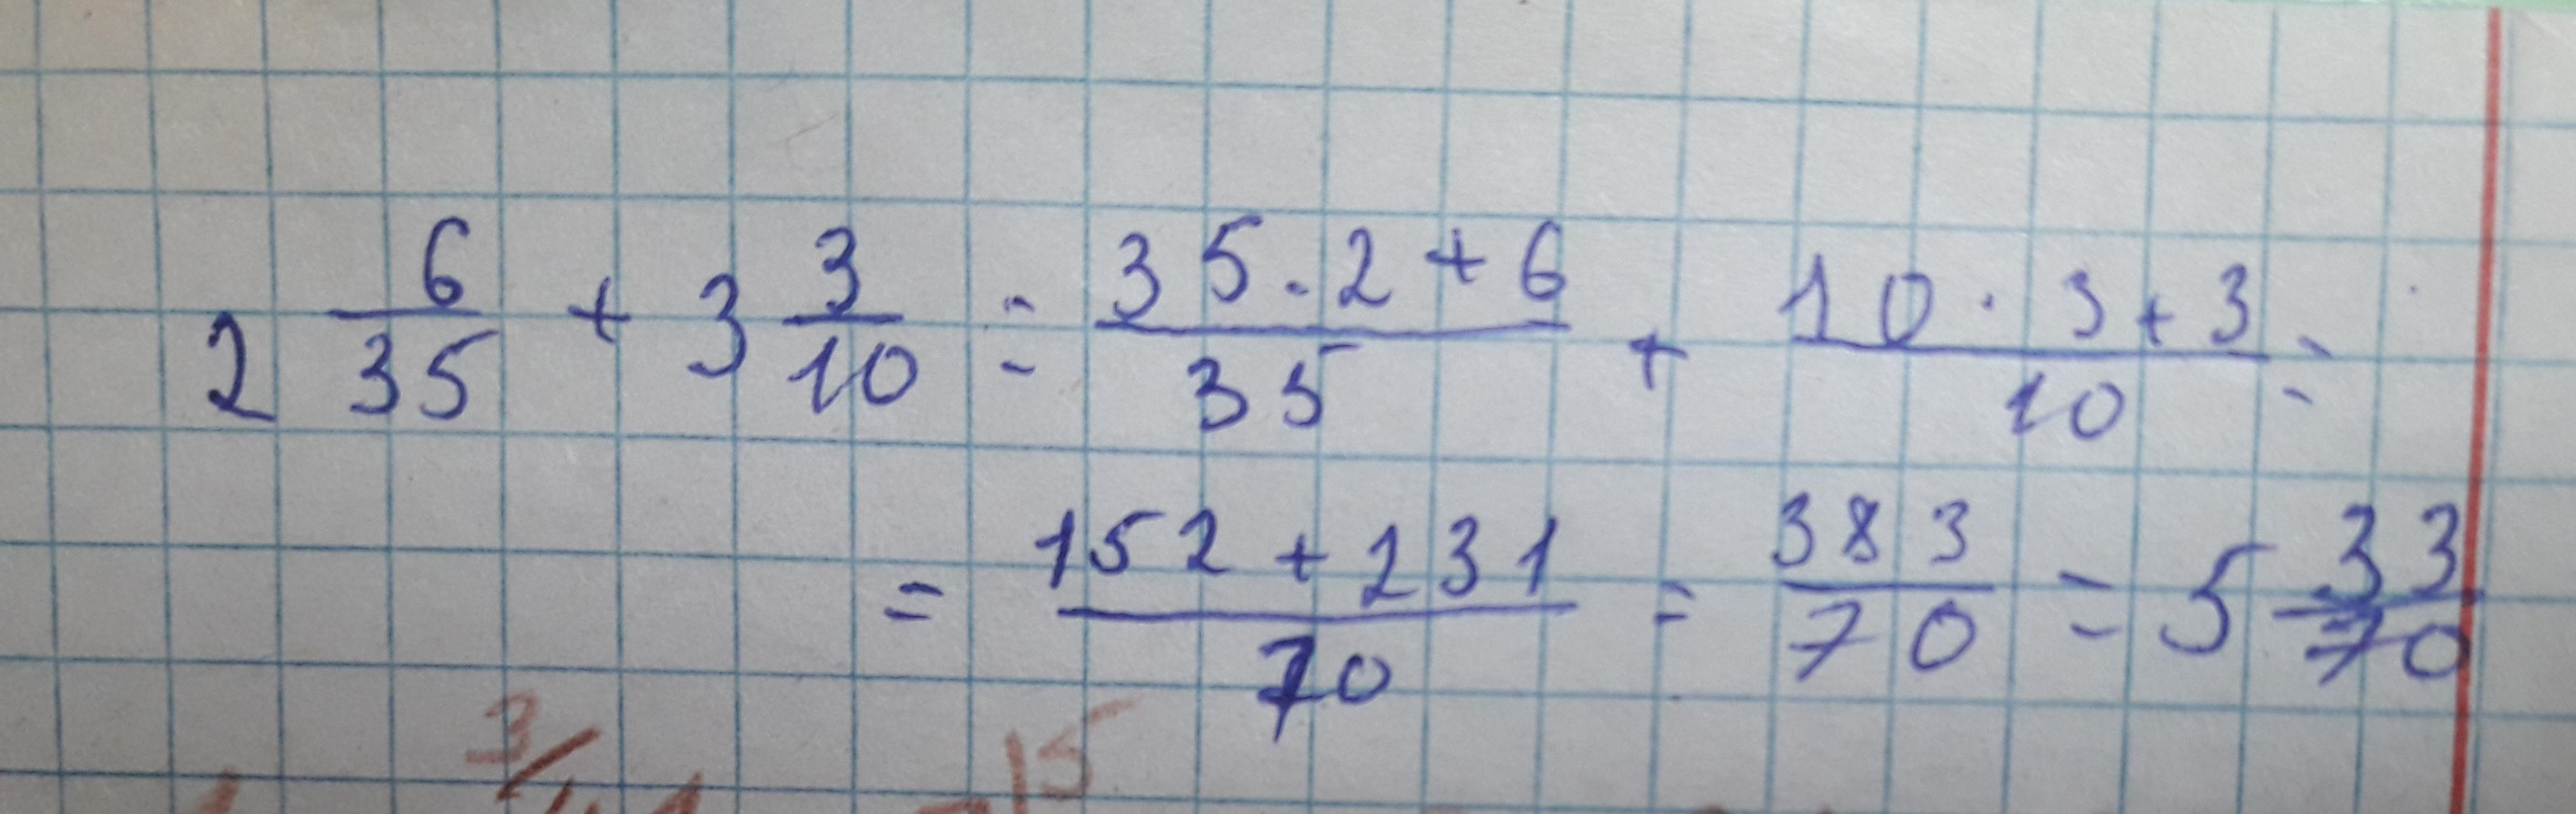 2 6/35 + 3 3/10 = 35·2+6/35 + 10·3+3/10 =
= 152+231/70 = 383/70 = 5 33/70
3/
15